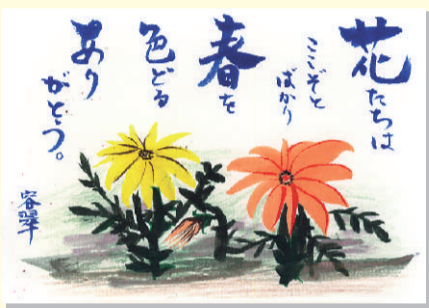 花たちは
ここぞと
ばかり
春を
色どる
あり
がとう。
容翠